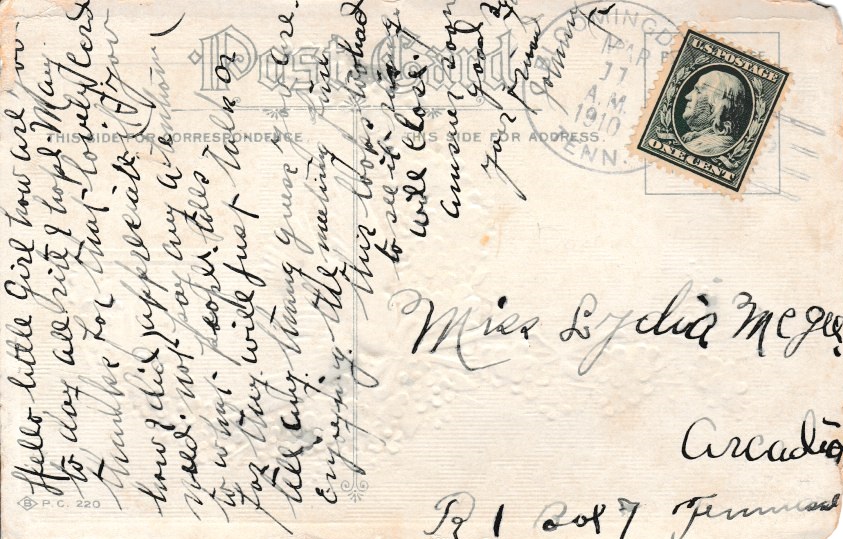 Post Card
THIS SIDE FOR CORRESPONDENCE
THIS SIDE FOR ADDRESS.
BLOOMINGDALE
MAR
11
A.M.
1910
TENN.
U.S. POSTAGE
ONE CENT
Hello little Girl how are you
to day all rite I hope. Many
thankes for that lovely Card
how I did appreciate it you
need not pay any atention
to what people tells
for they will just talk or
tell any thing guess you are
Enjoying the meeting fine
this looks
to see it
will close.
answer soon
good by
your friend
Johnny
Miss Lydia McGee
Arcadia
R 1 Box 7 Tennessee
P.C. 220